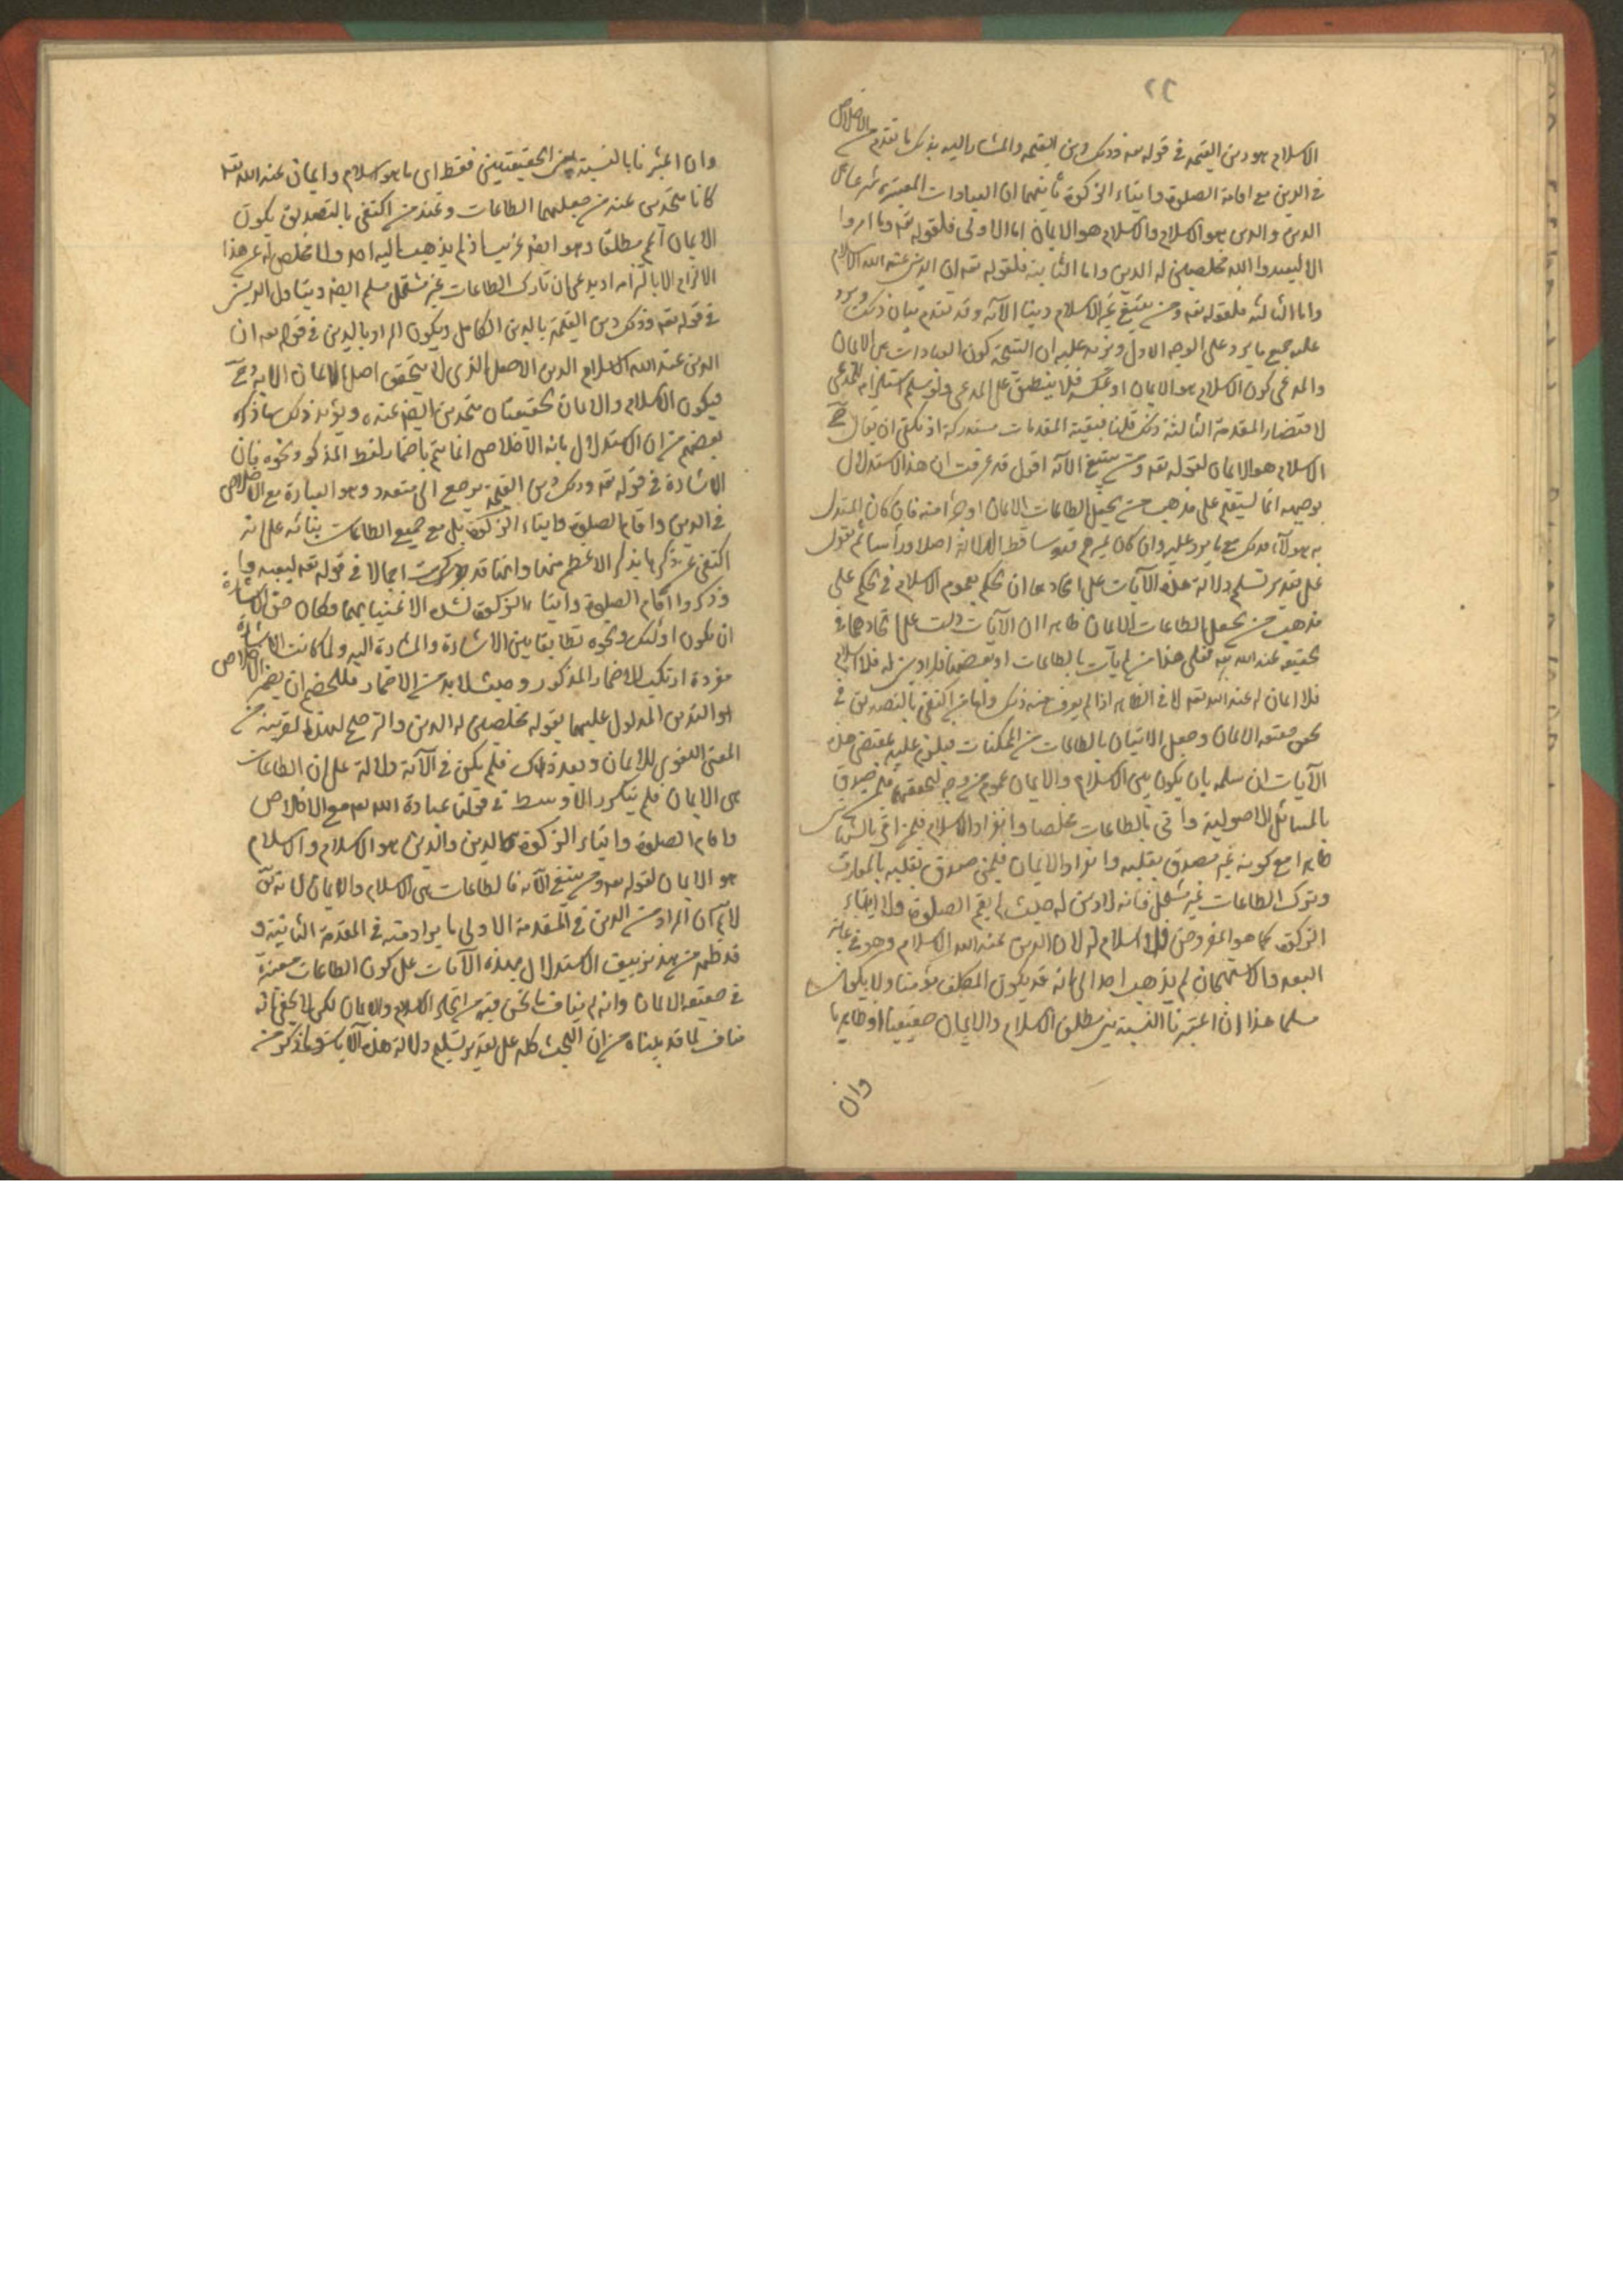 ٢٢
الاسلام هو دين القيمه في قوله تعه وذلك دين القيمه والمشار اليه بذلك ما تقدم من الاخلاص
في الدين مع اقامة الصلوة وايتاء الزكوة ثانيهما ان العبادات المعتبرة شرعا هي
الدين والدين هو الاسلام والاسلام هو الايمان اما الاولى فلقوله تعه وما امروا
الا ليعبدوا الله مخلصين له الدين واما الثانية فلقوله تعه ان الدين عند الله الاسلام
واما الثالثه فلقوله تعه ومن يبتغ غير الاسلام دينا الآيه وقد تقدم بيان ذلك ويرد
عليه جميع ما يرد على الوجه الاول ويزيد عليه ان النتيجة كون العبادات هي الايمان
والمدعى كون الاسلام هو الايمان او عكسه فلا ينطبق على المدعى ولو سلم استلزامه للمدعى
لاقتضاء المقدمة الثالثة ذلك قلنا فبقية المقدمات مستدركة اذ يكفي ان يقال
الاسلام هو الايمان لقوله تعه ومن يبتغ الآيه اقول قد عرفت ان هذا الاستدلال
بوجهيه انما يستقيم على مذهب من يجعل الطاعات الايمان او جزأ منه فان كان المستدل
به هؤلاء فذلك مع ما يرد عليه وان كان غيرهم فهو ساقط الدلالة اصلا ورأسا ثم نقول
على تقدير تسليم دلالة هذه الآيات على اتحادهما ان الحكم بعموم الاسلام في الحكم على
مذهب من يجعل الطاعات الايمان ظاهر اذ الآيات دلت على اتحادهما في
حقيقه عند الله تعه فعلى هذا من لم يأت بالطاعات او بعضها فلا دين له فلا اسلام
فلا ايمان له عند الله تعه لا في الظاهر اذا لم يعرف منه ذلك واما من اكتفى بالتصديق في
تحقق حقيقه الايمان وجعل الاتيان بالطاعات من المكملات فيلزم عليه بمقتضى هذه
الآيات ان سلمه بان يكون بين الاسلام والايمان عموم من وجه لتحققهما فيمن صدق
بالمسائل الاصولية واتى بالطاعات مخلصا وانفراد الاسلام فيمن اتى بالشهادتين
ظاهرا مع كونه غير مصدق بقلبه وانفراد الايمان فيمن صدق بقلبه بالمعارف
وترك الطاعات غير مستحل فانه لا دين له حيث لم يقم الصلوة ولا ايتاء
الزكوة كما هو المفروض فلا اسلام له لان الدين عند الله الاسلام وهو في غاية
البعد والاستهجان لم يذهب احد الى انه قد يكون المكلف مؤمنا ولا يكون
مسلما هذا ان اعتبرنا النسبة بين مطلق الاسلام والايمان حقيقيا او ظاهريا
وان
وان اعتبرنا بالنسبة بين الحقيقيتين فقط اى ما هو اسلام وايمان عند الله تعه
كانا متحدين عند من جعلهما الطاعات وعند من اكتفى بالتصديق يكون
الايمان اعم مطلقا وهو ايضا غريب اذ لم يذهب اليه احد ولا مخلص له عن هذا
الالزام الا بالتزامه اذ يدعى ان تارك الطاعات غير مستحل مسلم ايضا ويتاول الدين
في قوله تعه وذلك دين القيمة بالدين الكامل ويكون المراد بالدين في قوله تعه ان
الدين عند الله الاسلام الدين الاصل الذى لا يتحقق اصل الايمان الا به وح
فيكون الاسلام والايمان الحقيقيتان متحدين ايضا عنده ويؤيد ذلك ما ذكره
بعضهم من ان الاستدلال بآية الاخلاص انما يتم باضمار لفظ المذكور ونحوه فان
الاشارة في قوله تعه وذلك دين القيمة يرجع الى متعدد وهو العبادة مع الاخلاص
في الدين واقام الصلوة وايتاء الزكوة بل مع جميع الطاعات بنائه على انه
اكتفى عن ذكرها بذكر الاعظم منها وانها قد ذكرت اجمالا في قوله تعه ليعبدوا
وذكر واقام الصلوة وايتاء الزكوة لشدة الاعتناء بهما فكان حق الاشارة
ان يكون اولئك ونحوه تطابقا بين الاشارة والمشارة اليه ولما كانت الاشارة
مفردة ارتكب الاضمار المذكور وحيث لا بد من الاضمار فللخصم ان يضمر الاخلاص
او التدين المدلول عليهما بقوله مخلصين له الدين والترجيح لهذا لقربه من
المعنى اللغوى للايمان وبعد ذلك فلم يكن في الآية دلالة على ان الطاعات
هي الايمان فلم يتكرر الاوسط في قولنا عبادة الله تعه مع الاخلاص
واقام الصلوة وايتاء الزكوة هو الدين والدين هو الاسلام والاسلام
هو الايمان لقوله تعه ومن يبتغ الآيه فالطاعات هي الاسلام والايمان
لان المراد من الدين في المقدمة الاولى ما يراد منه في المقدمة الثانية و
قد ظهر من هذا تزييف الاستدلال بهذه الآيات على كون الطاعات معتبرة
في حقيقه الايمان وانه لم يناف ما نحن فيه من اتحاد الاسلام والايمان لكن لا يخفى انه
مناف لما قد بيناه من ان البحث كله على تقدير تسليم دلالة هذه الآيات وما ذكر من